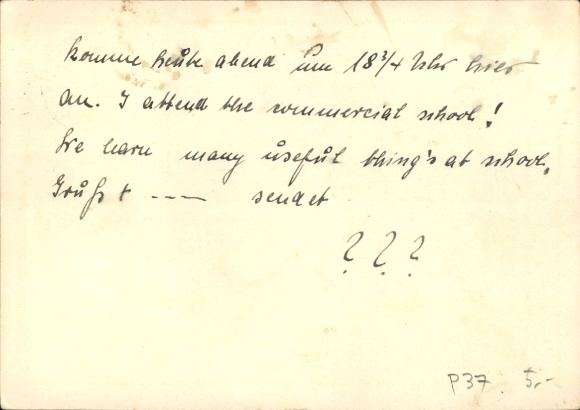 Komme heute abend um 18 3/4 Uhr hier
an. I attend the commercial school!
We learn many useful thing's at school.
Gruß + ---- sendet
? ? ?
P37 5,-